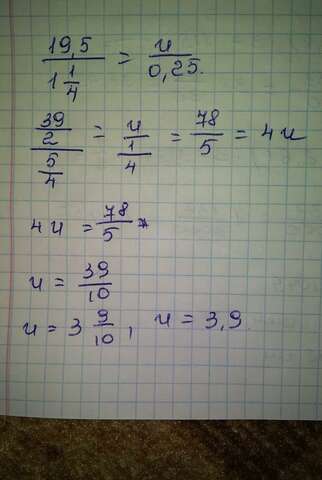 19,5 / 1 1/4 = u / 0,25.
(39/2) / (5/4) = u / (1/4) = 78/5 = 4u
4u = 78/5
u = 39/10
u = 3 9/10, u = 3,9.